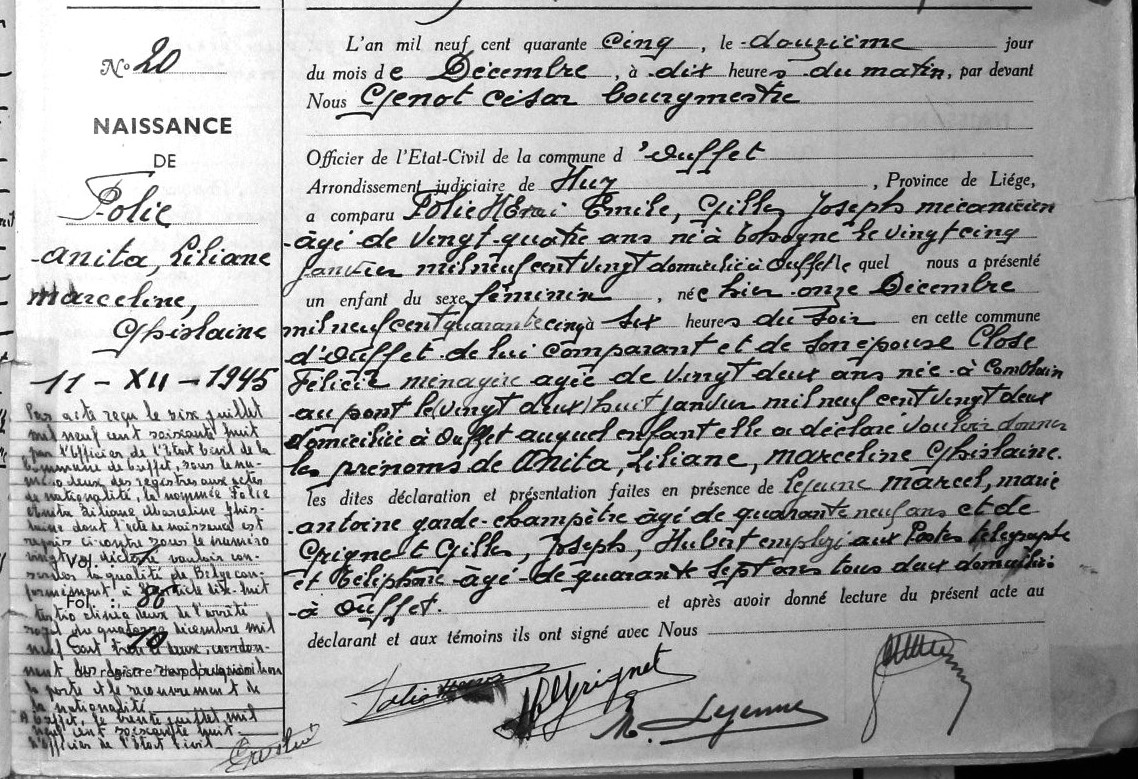 N° 20
NAISSANCE
DE
Folie
Anita, Liliane
Marceline,
Ghislaine
11 - XII - 1945
Par acte reçu le six juillet
mil neuf cent soixante huit
par l'Officier de l'Etat Civil de la
Commune de Ouffet, sous le nu-
méro deux des registres aux actes
de nationalité, la nommée Folie
Anita Liliane Marceline Ghis-
laine dont l'acte de naissance est
repris ci-contre sous le numéro
vingt, a déclaré vouloir con-
server la qualité de Belge con-
formément à l'article dix-huit
deux de l'arrêté
royal du quatorze décembre mil
neuf cent trente deux, coordon-
nant les lois sur l'acquisition
la perte et le recouvrement de
la nationalité
A Ouffet, le trente juillet mil
neuf cent soixante huit.
L'Officier de l'Etat Civil
Vol.
Fol. : 80
10
L'an mil neuf cent quarante cinq, le douzième jour
du mois de Décembre, à dix heures du matin, par devant
Nous Genot César bourgmestre
Officier de l'Etat-Civil de la commune d'Ouffet
Arrondissement judiciaire de Huy, Province de Liége,
a comparu Folie Henri Emile, Gilles Joseph mécanicien
âgé de vingt-quatre ans né à Bosogne le vingt cinq
janvier mil neuf cent vingt domicilié à Ouffet lequel nous a présenté
un enfant du sexe féminin, née hier onze Décembre
mil neuf cent quarante cinq à six heures du soir en cette commune
d'Ouffet de lui comparant et de son épouse Close
Félicie ménagère agée de vingt deux ans née à Comblain
au pont le (vingt deux) huit janvier mil neuf cent vingt deux
domiciliée à Ouffet auquel enfant elle a déclaré vouloir donner
les prénoms de Anita, Liliane, Marceline Ghislaine.
les dites déclaration et présentation faites en présence de Lejeune Marcel, Marie
Antoine garde-champêtre âgé de quarante neuf ans et de
Grignet Gilles, Joseph, Hubert employé aux Postes télégraphe
et téléphone âgé de quarante sept ans tous deux domiciliés
à Ouffet. et après avoir donné lecture du présent acte au
déclarant et aux témoins ils ont signé avec Nous
Folie Henri
H. Grignet
M. Lejeune